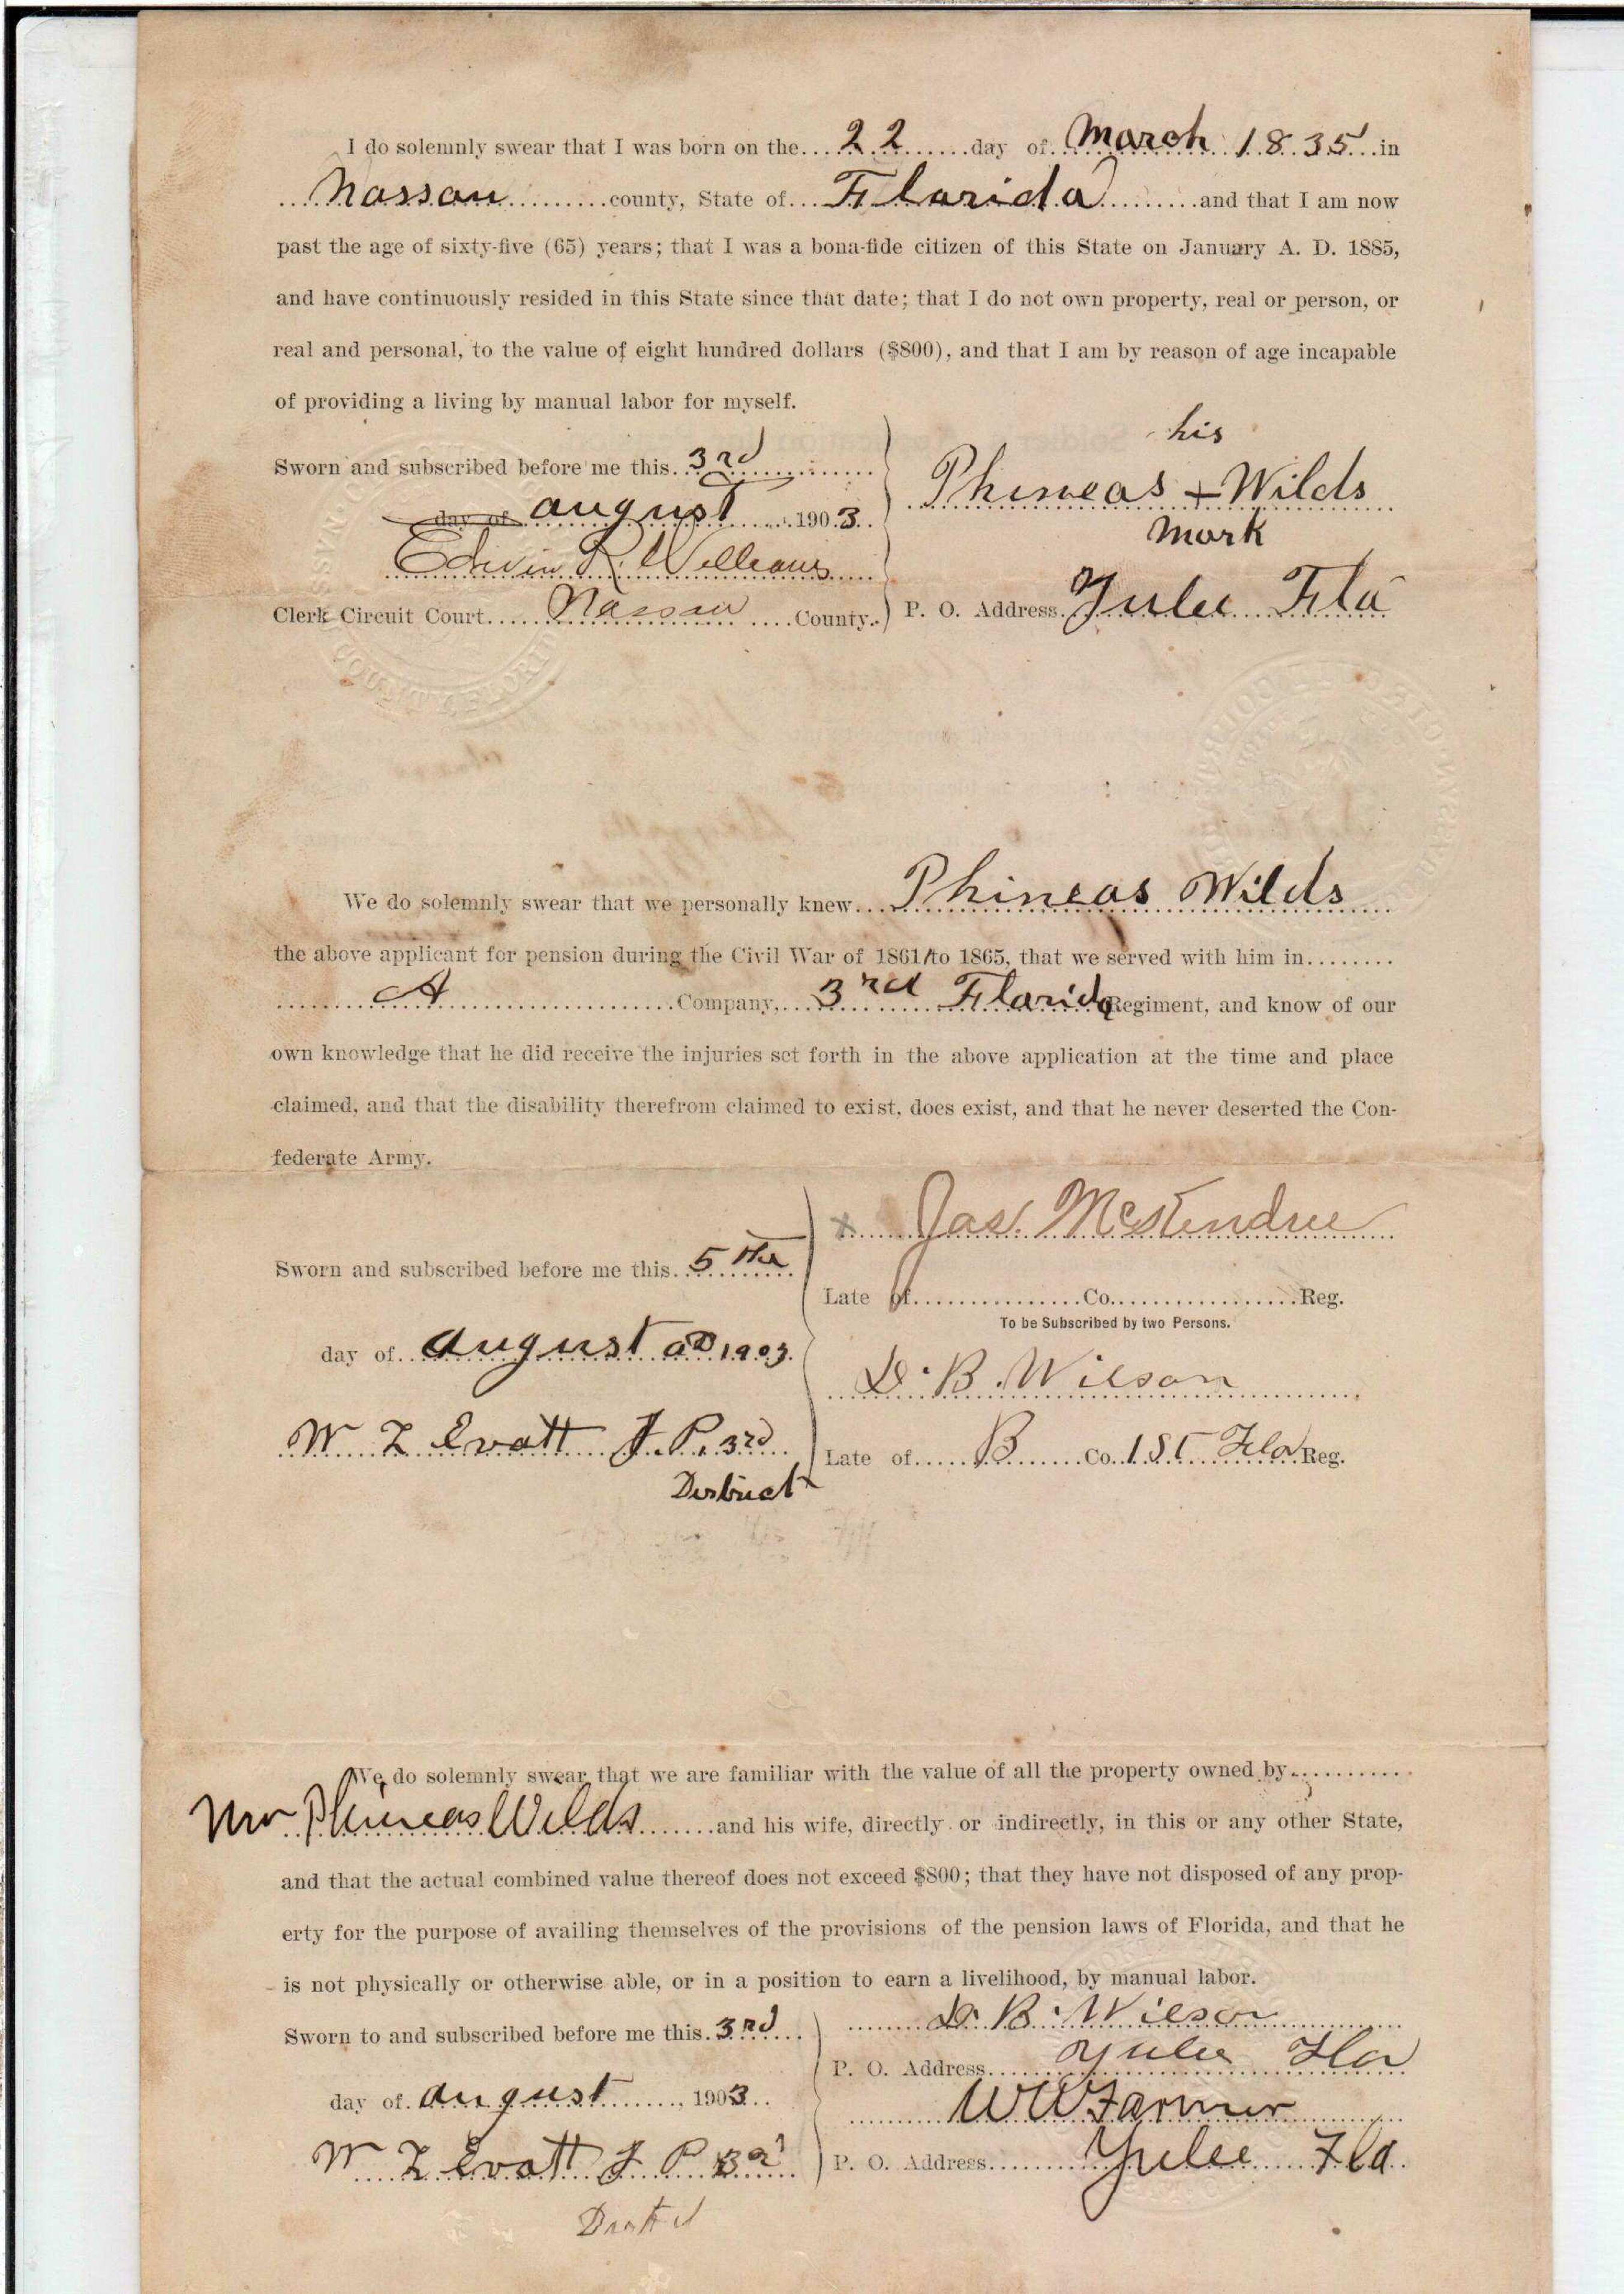 I do solemnly swear that I was born on the 22 day of March 1835 in
Nassau county, State of Florida and that I am now
past the age of sixty-five (65) years; that I was a bona-fide citizen of this State on January A. D. 1885,
and have continuously resided in this State since that date; that I do not own property, real or person, or
real and personal, to the value of eight hundred dollars ($800), and that I am by reason of age incapable
of providing a living by manual labor for myself.
his
Sworn and subscribed before me this 3rd
Phineas + Wilds
day of august 1903
mark
Edwin R. Williams
Clerk Circuit Court Nassau County.
P. O. Address. Yulee Fla
We do solemnly swear that we personally knew Phineas Wilds
the above applicant for pension during the Civil War of 1861 to 1865, that we served with him in
A Company, 3rd Florida Regiment, and know of our
own knowledge that he did receive the injuries set forth in the above application at the time and place
claimed, and that the disability therefrom claimed to exist, does exist, and that he never deserted the Con-
federate Army.
x Jas. McKendree
Sworn and subscribed before me this 5th
Late of Co. Reg.
To be Subscribed by two Persons.
day of august AD 1903.
D. B. Wilson
W Z Evatt J. P. 3rd
Late of B Co. 1st Fla Reg.
District
We do solemnly swear that we are familiar with the value of all the property owned by
Mr Phineas Wilds and his wife, directly or indirectly, in this or any other State,
and that the actual combined value thereof does not exceed $800; that they have not disposed of any prop-
erty for the purpose of availing themselves of the provisions of the pension laws of Florida, and that he
is not physically or otherwise able, or in a position to earn a livelihood, by manual labor.
D. B. Wilson
Sworn to and subscribed before me this 3rd
P. O. Address Yulee Fla
day of august, 1903
WW Farmer
W Z Evatt J P 3rd
P. O. Address Yulee Fla.